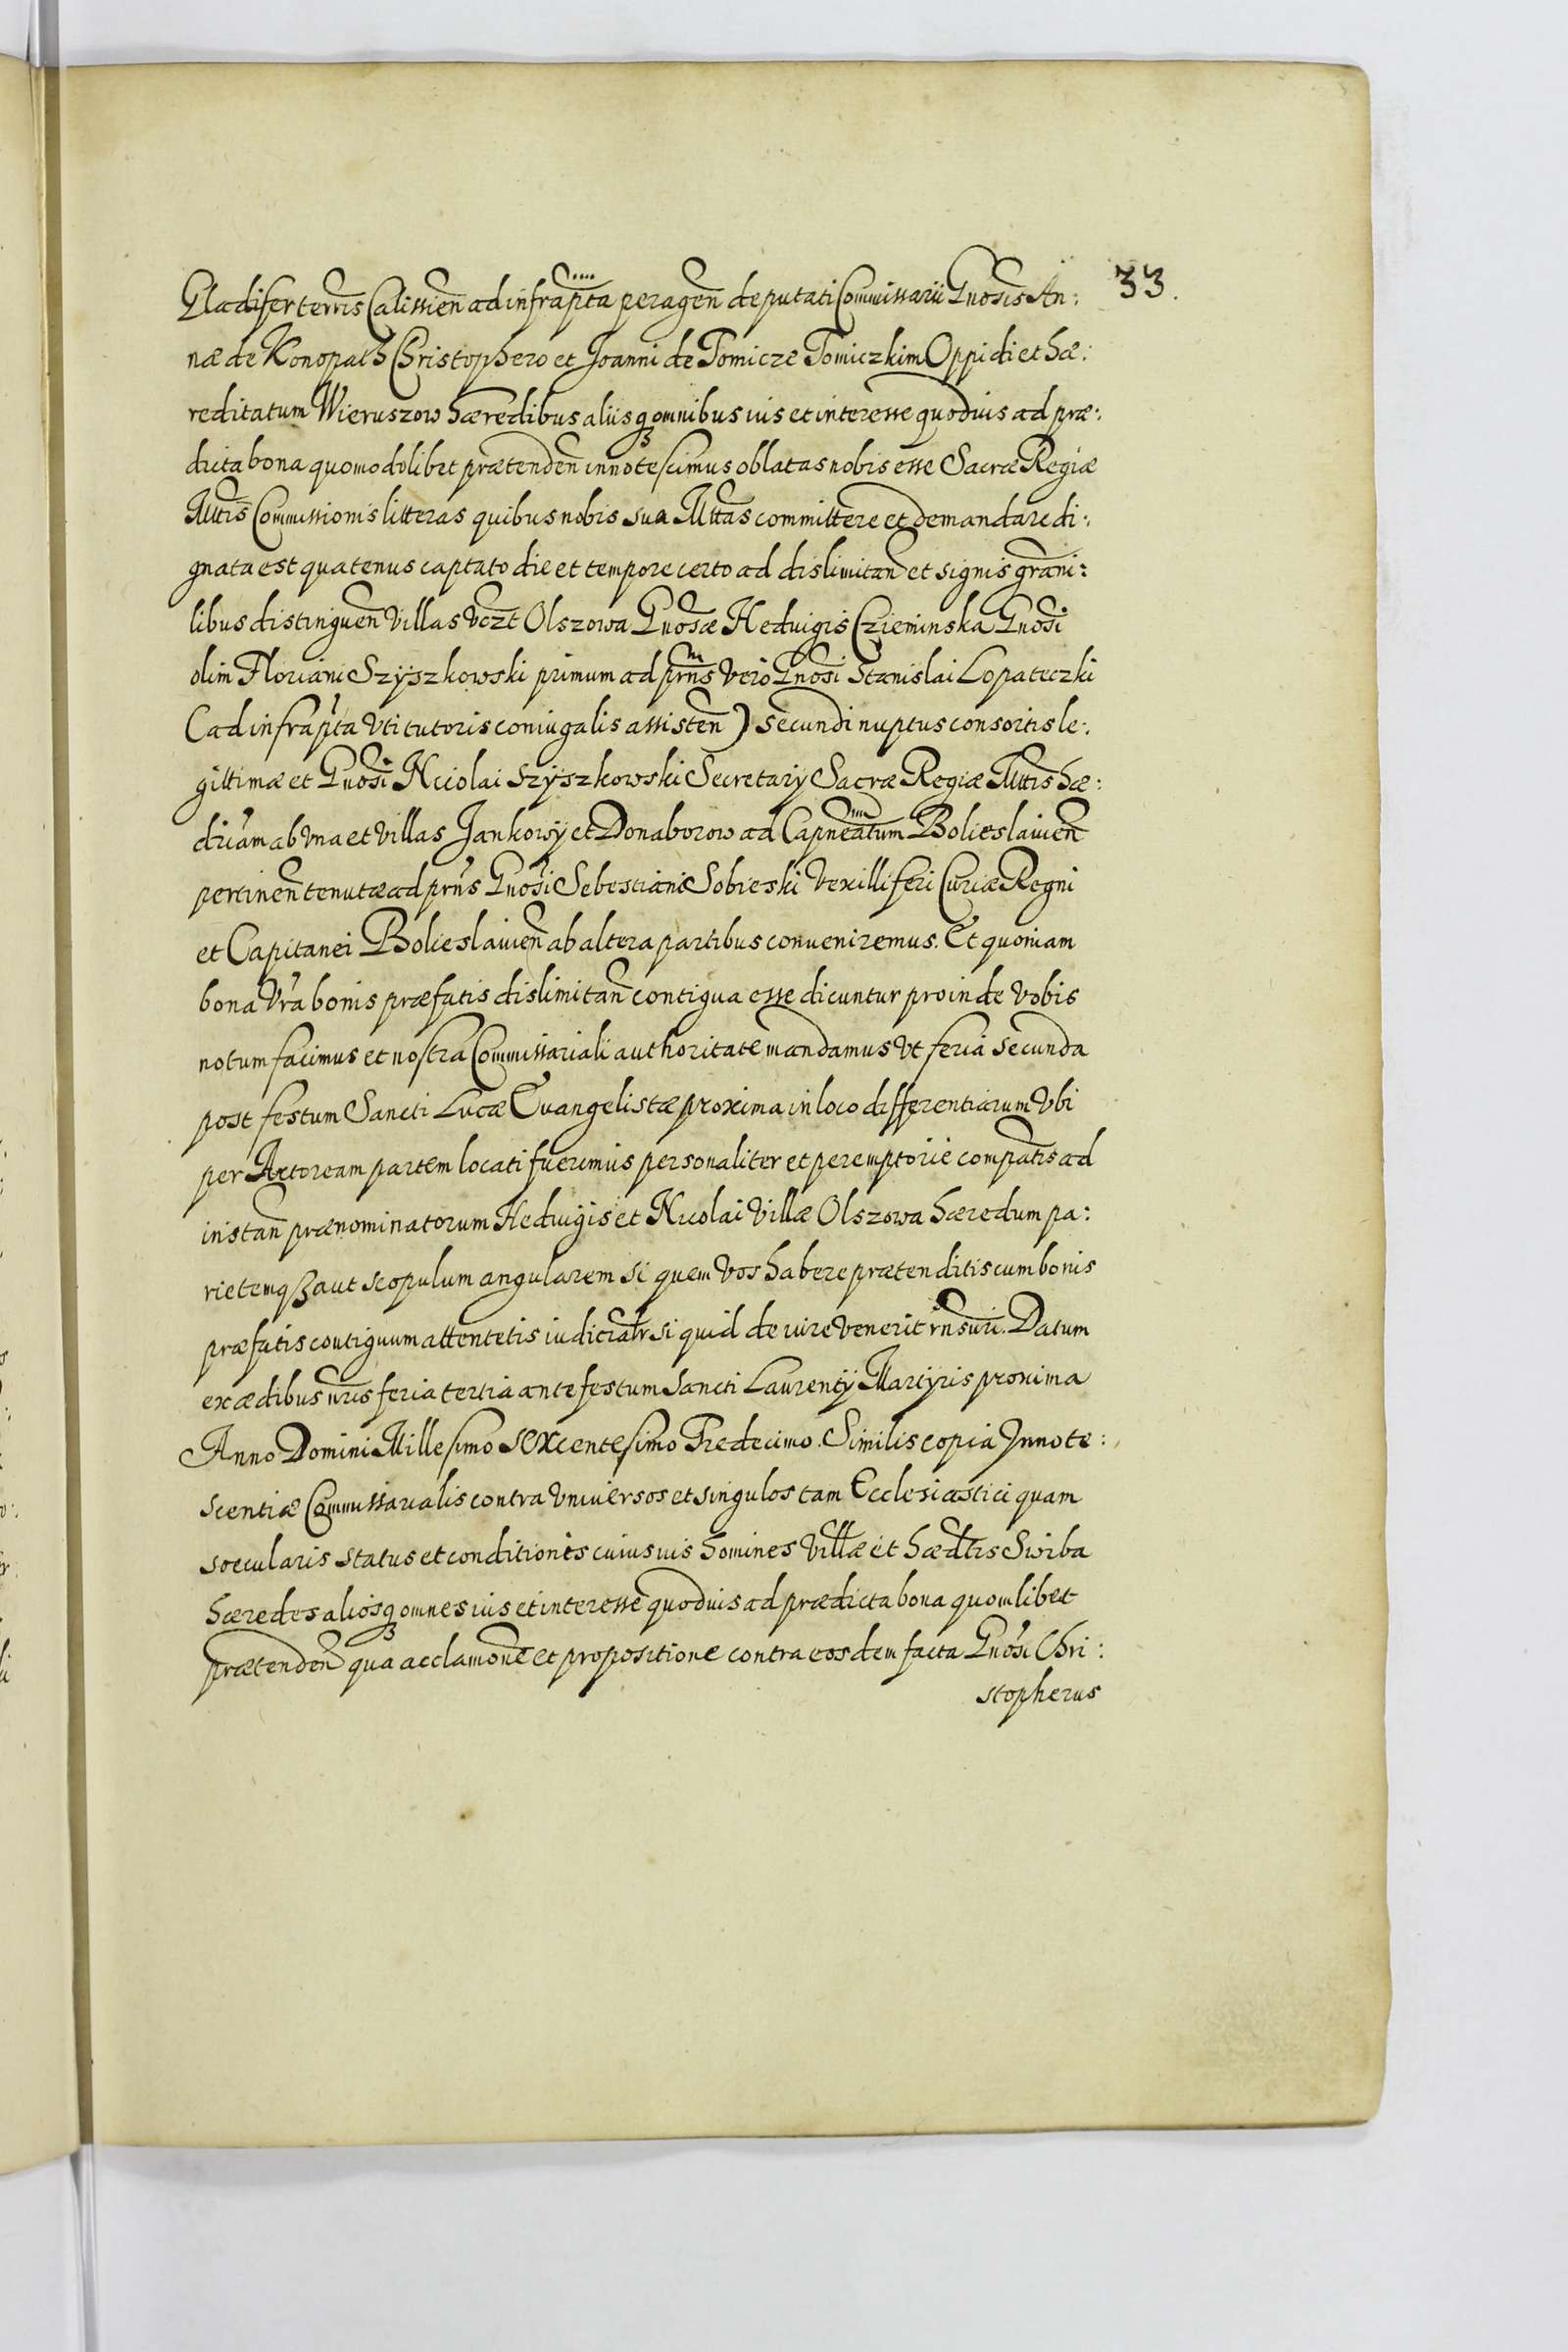 33.
Gladifer terris Calissien̄ ad infrapt̄a peragen̄ deputati Commissarii Gnosis An:
næ de Konopath Christophero et Joanni de Tomicze Tomiczkim Oppidi et hæ:
reditatum Wieruszow hæredibus aliisqꝫ omnibus ius et interesse quoduis ad præ:
dicta bona quomodolibet prætenden̄ innotescimus oblatas nobis esse Sacræ Regiæ
Mttis Commissionis litteras quibus nobis sua Mttas committere et demandare di:
gnata est quatenus captato die et tempore certo ad dislimitan̄ et signis grani:
libus distinguen̄ villas vczt Olszowa Gnosæ Heduigis Czieminska Gnosi
olim Floriani Szyszkowski primum ad prn̄s vero Gnosi Stanislai Lopateczki
(ad infrapt̄a vti tutoris coniugalis assisten̄) secundi nuptus consortis le:
gittimæ et Gnosi Nicolai Szyszkowski Secretarÿ Sacræ Regiæ Mttis hæ:
dium ab vna et villas Jankowÿ et Donaborow ad Capneatum Bolieslauien̄
pertinen̄ tenutæ ad prn̄s Gnosi Sebestiani Sobieski Vexilliferi Curiæ Regni
et Capitanei Bolieslauien̄ ab altera partibus conueniremus. Et quoniam
bona vr̄a bonis præfatis dislimitan̄ contigua esse dicuntur proinde vobis
notum facimus et nostra Commissariali authoritate mandamus vt feria secunda
post festum Sancti Lucæ Euangelistæ proxima in loco differentiarum vbi
per Actoream partem locati fuerimus personaliter et peremptorie compatis ad
instan̄ prænominatorum Heduigis et Nicolai villæ Olszowa hæredum pa:
rietemqꝫ aut scopulum angularem si quem vos habere prætenditis cum bonis
præfatis contiguum attentetis iudicialr̄ si quid de iure venerit rn̄suri. Datum
ex ædibus nr̄is feria tertia ante festum Sancti Laurentÿ Martÿris proxima
Anno Domini Millesimo sexcentesimo Tredecimo. Similis copia Innote:
scentiæ Commissarialis contra vniuersos et singulos tam Ecclesiastici quam
sæcularis status et conditionis cuiusuis homines villæ et hædtis Swiba
hæredes aliosqꝫ omnes ius et interesse quoduis ad prædicta bona quomlibet
prætenden̄ qua acclamone et propositione contra eosdem facta Gnosi Chri:
stopherus